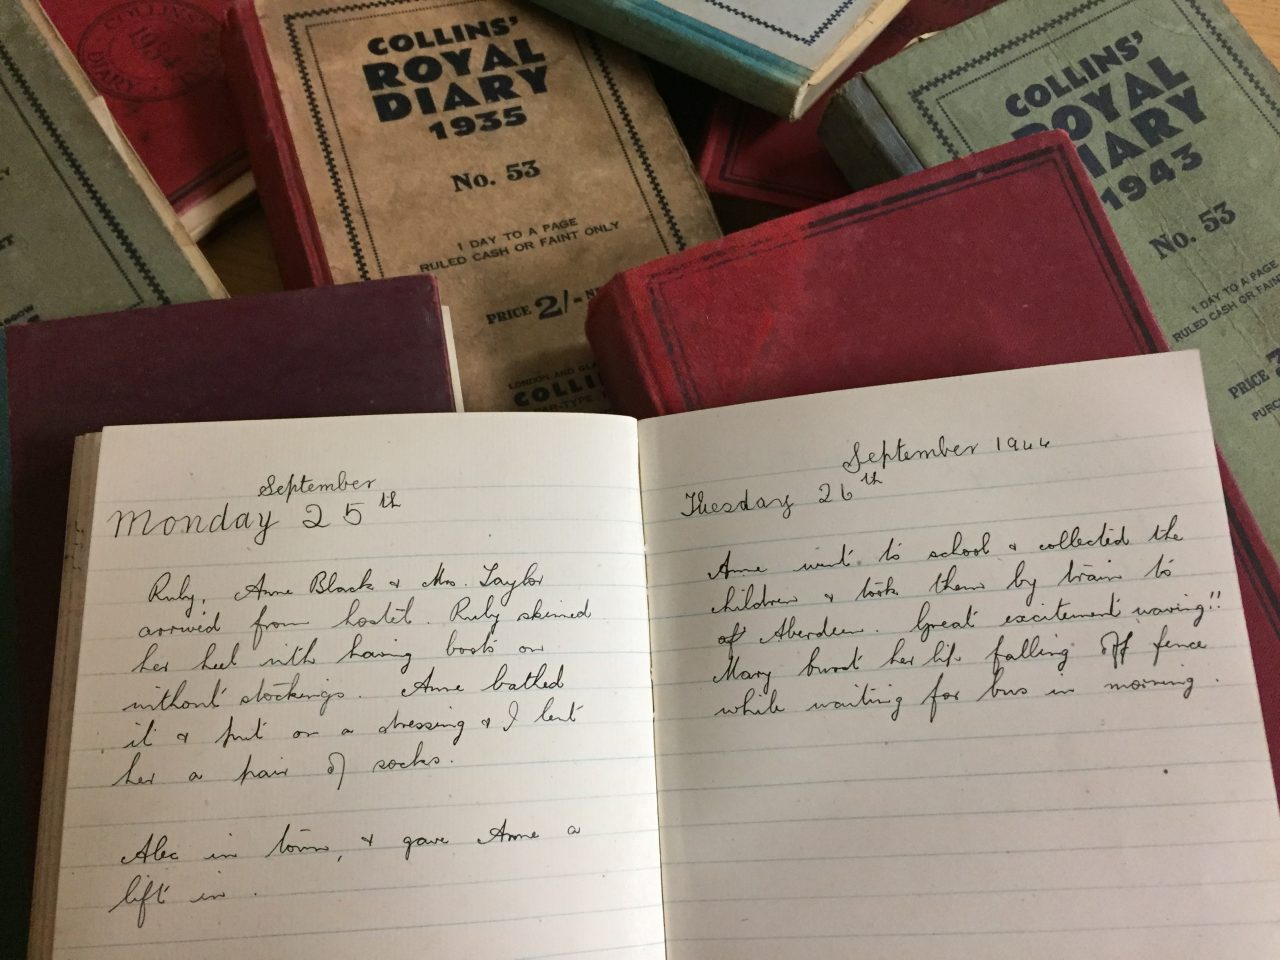 1954
DIARY
COLLINS'
ROYAL
DIARY
1935
No. 53
1 DAY TO A PAGE
RULED CASH OR FAINT ONLY
PRICE 2/-
LONDON AND
COLLI
COLLINS'
ROYAL
DIARY
1943
No. 53
1 DAY TO A PAGE
RULED CASH OR FAINT
PRICE
September
Monday 25th
Ruby, Anne Black & Mrs. Taylor
arrived from hostel. Ruby skinned
her heel with having boots on
without stockings. Anne bathed
it & put on a dressing & I lent
her a pair of socks.
Alec in town, & gave Anne a
lift in.
September 1944
Tuesday 26th
Anne went to school & collected the
children & took them by train to
Aberdeen. Great excitement waving!!
Mary burst her lip falling off fence
while waiting for bus in morning.